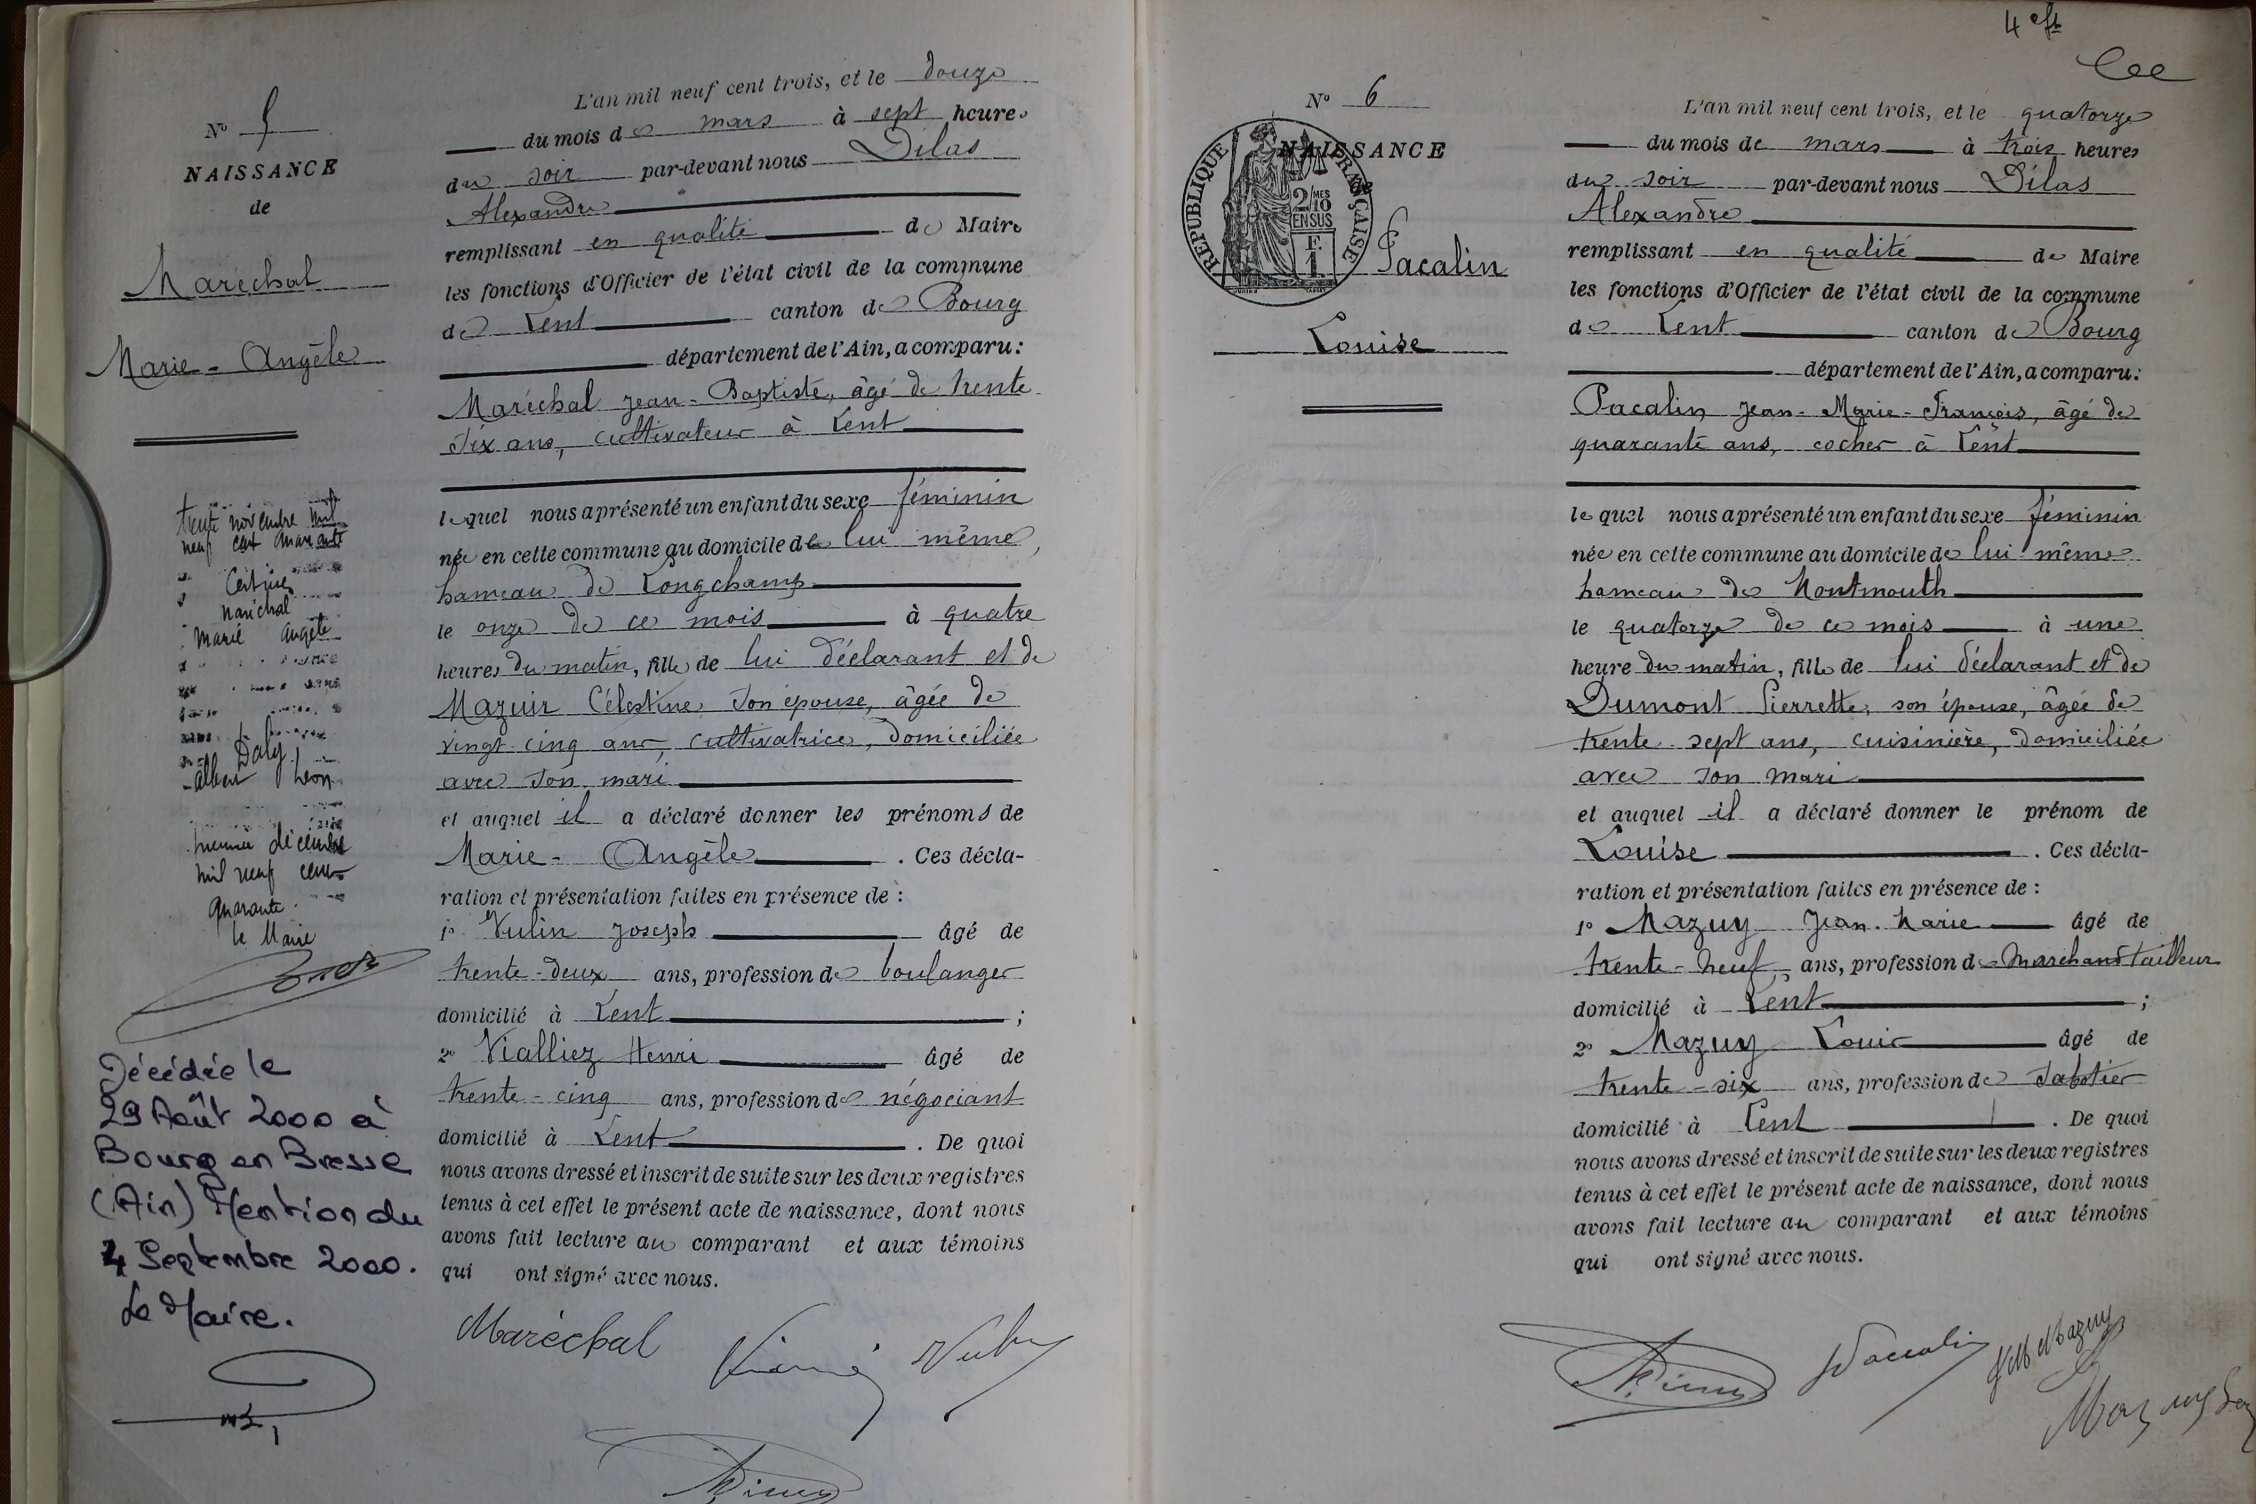 N° 5
NAISSANCE
de
Maréchal
Marie-Angèle
trente novembre mil
neuf cent quarante
Certines
Maréchal
Marie Angèle
Daly
Albert Léon
premier décembre
mil neuf cent
quarante.
le Maire
Décédée le
29 Août 2000 à
Bourg en Bresse
(Ain) Mention du
4 Septembre 2000.
Le Maire.
L'an mil neuf cent trois, et le douze
du mois de mars à sept heures
du soir par-devant nous Dilas
Alexandre
remplissant en qualité de Maire
les fonctions d'Officier de l'état civil de la commune
de Lent canton de Bourg
département de l'Ain, a comparu :
Maréchal Jean-Baptiste, âgé de trente
six ans, cultivateur à Lent
lequel nous a présenté un enfant du sexe féminin
née en cette commune au domicile de lui même,
hameau de Longchamp
le onze de ce mois à quatre
heures du matin, fille de lui déclarant et de
Mazuir Célestine son épouse, âgée de
vingt cinq ans, cultivatrice, domiciliée
avec son mari
et auquel il a déclaré donner les prénoms de
Marie-Angèle . Ces décla-
ration et présentation faites en présence de :
1° Vulin Joseph âgé de
trente-deux ans, profession de boulanger
domicilié à Lent ;
2° Vialliez Henri âgé de
trente-cinq ans, profession de négociant
domicilié à Lent . De quoi
nous avons dressé et inscrit de suite sur les deux registres
tenus à cet effet le présent acte de naissance, dont nous
avons fait lecture au comparant et aux témoins
qui ont signé avec nous.
Maréchal
4
N° 6
NAISSANCE
de
REPUBLIQUE FRANÇAISE
2/10 MES
EN SUS
F.
1
Pacalin
Louise
L'an mil neuf cent trois, et le quatorze
du mois de mars à trois heures
du soir par-devant nous Dilas
Alexandre
remplissant en qualité de Maire
les fonctions d'Officier de l'état civil de la commune
de Lent canton de Bourg
département de l'Ain, a comparu :
Pacalin Jean-Marie-François, âgé de
quarante ans, cocher à Lent
lequel nous a présenté un enfant du sexe féminin
née en cette commune au domicile de lui même
hameau de Montmouth
le quatorze de ce mois à une
heure du matin, fille de lui déclarant et de
Dumont Pierrette, son épouse, âgée de
trente sept ans, cuisinière, domiciliée
avec son mari
et auquel il a déclaré donner le prénom de
Louise . Ces décla-
ration et présentation faites en présence de :
1° Mazuy Jean-Marie âgé de
trente-neuf ans, profession de Marchand tailleur
domicilié à Lent ;
2° Mazuy Louis âgé de
trente-six ans, profession de sabotier
domicilié à Lent . De quoi
nous avons dressé et inscrit de suite sur les deux registres
tenus à cet effet le présent acte de naissance, dont nous
avons fait lecture au comparant et aux témoins
qui ont signé avec nous.